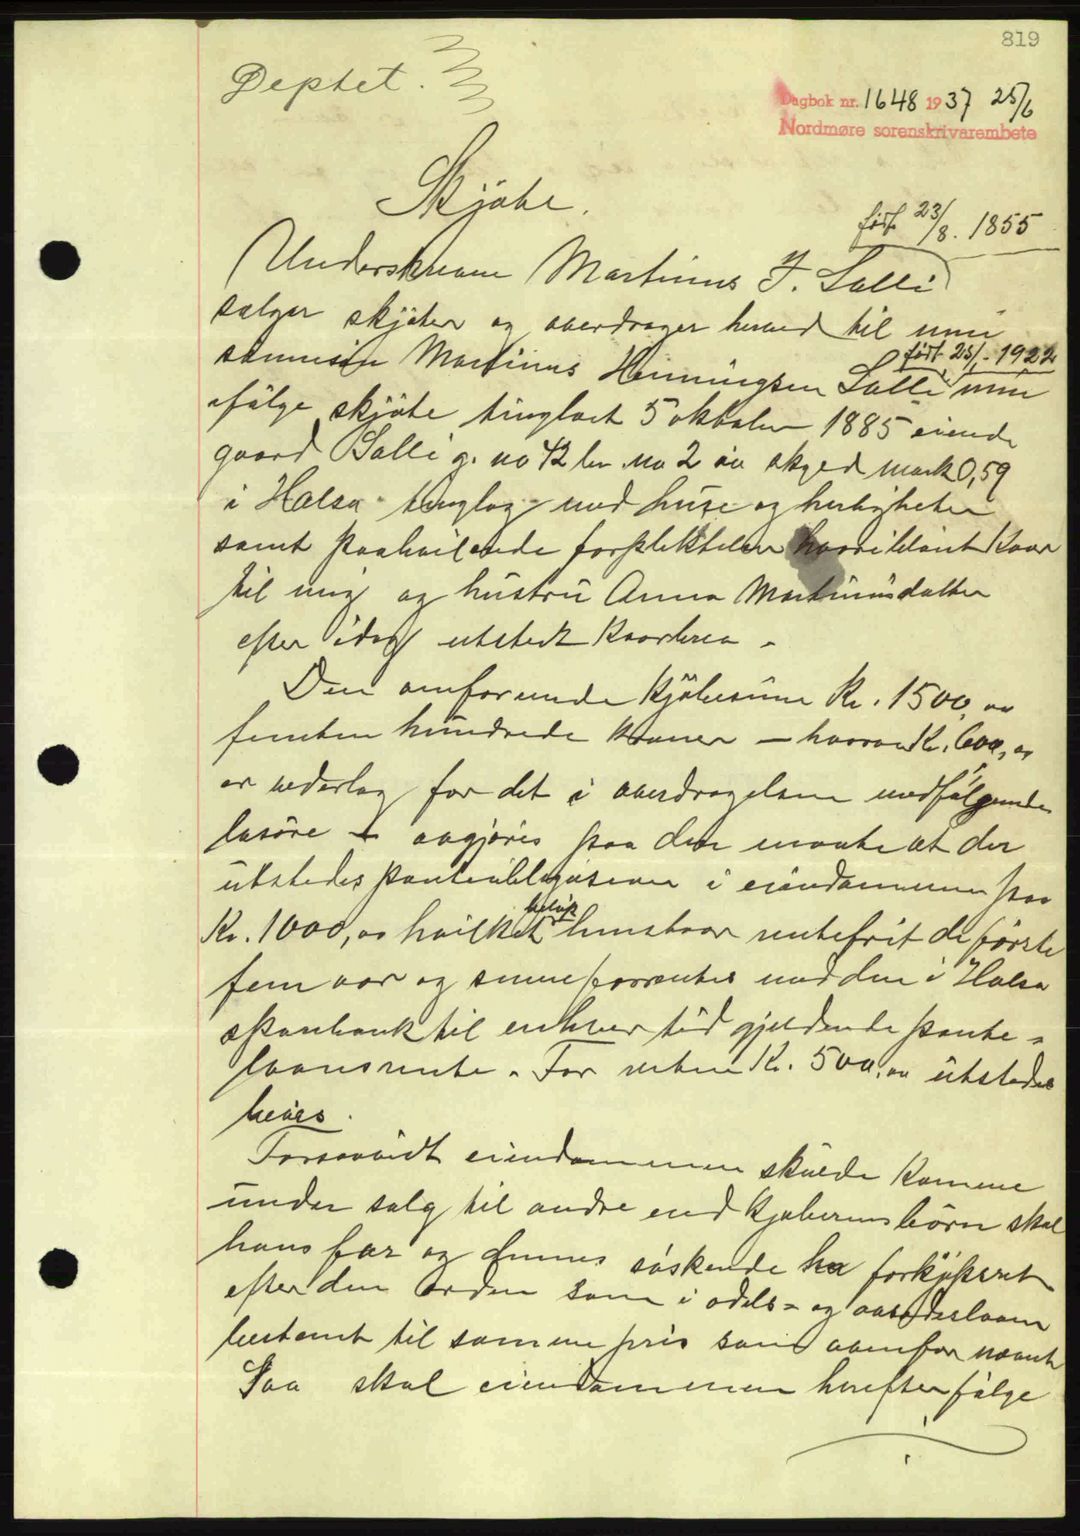 819
Deptet.
Dagbok nr. 1648 1937 25/6
Nordmøre sorenskrivarembete
Skjöte.
født 23/8. 1855
Underskrevne Martinus J. Salli
sælger skjøter og overdrager herved til min
født 25/1 - 1922
sønnesøn Martinus Henningsen Salli min
ifølge skjöte tinglæst 5 oktober 1885 eiende
gaard Salli g. no 42 br. no 2 av skyld mark 0,59
i Halsa tinglag med huse og herligheter
samt paahvilende forpliktelser hvoriblant Kaar
til mig og hustru Anna Martinusdatter
efter idag utstedt Kaarbrev.
Den omforenede Kjöbesum Kr. 1500,00
femten hundrede Kroner — hvorav Kr. 600,00
er vederlag for det i overdragelsen medfølgende
løsöre — avgjøres paa den maate at der
utstedes panteobligasjon i eiendommen paa
beløp
Kr. 1000,00 hvilket henstaar rentefrit de første
fem aar og siden forrentes med den i Halsa
sparebank til enhver tid gjeldende pante-
laansrente. For resten Kr. 500,00 utstedes
bevis.
Forsaavidt eiendommen skulde Komme
under salg til andre end Kjøberens börn skal
hans far og dennes søskende ha forkjøpsret
efter den orden som i odels- og aasædesloven
bestemt til samme pris som ovenfor nævnt
Saa skal eiendommen herefter følge